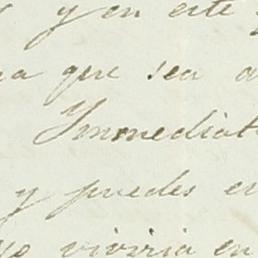 y en este
que sea
Immediat
y puedes en
yo viviria en